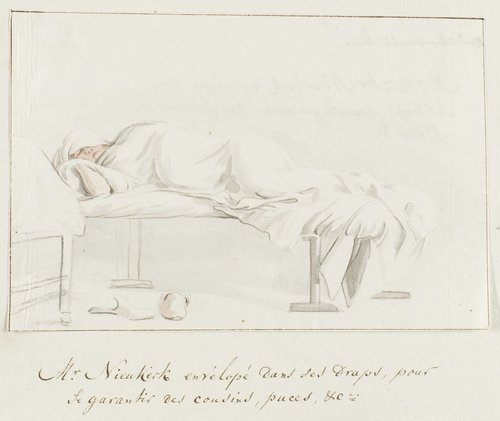 Mr Nieukerk envelopé dans ses Draps, pour
se garantir des cousins, puces, &c=